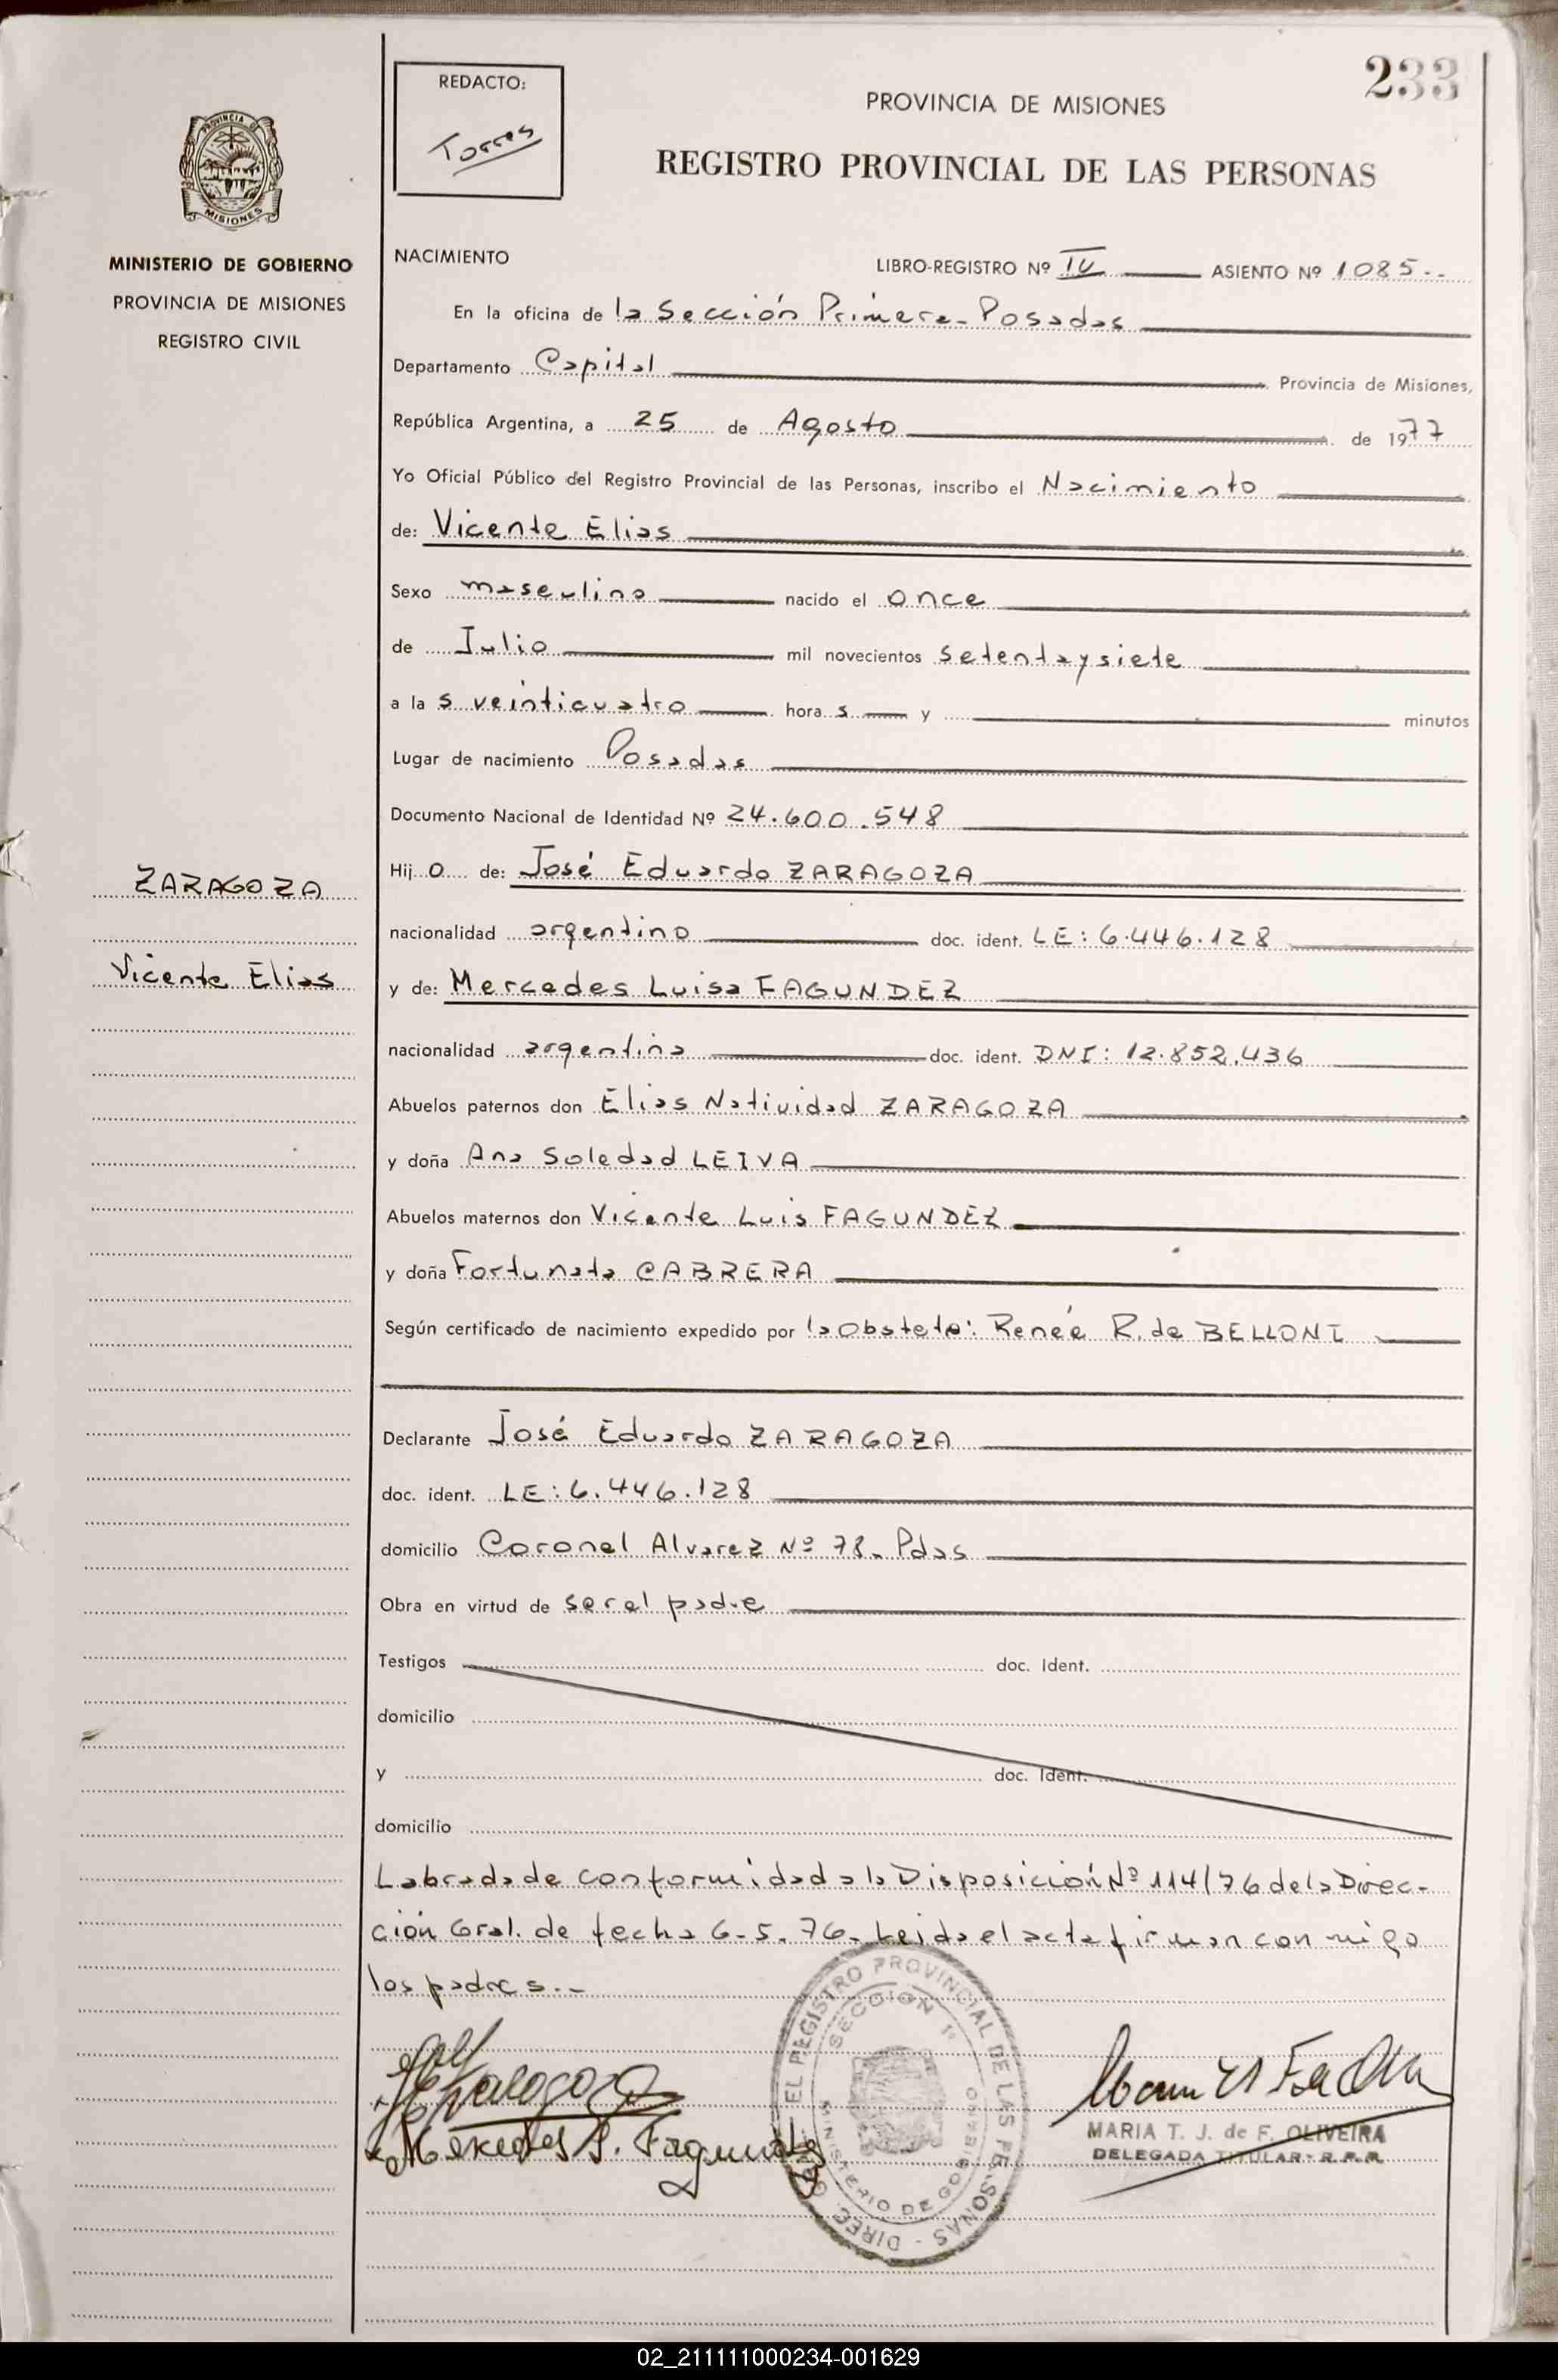 233
REDACTO:
Torres
PROVINCIA DE MISIONES
REGISTRO PROVINCIAL DE LAS PERSONAS
PROVINCIA DE
MISIONES
MINISTERIO DE GOBIERNO
PROVINCIA DE MISIONES
REGISTRO CIVIL
NACIMIENTO
LIBRO-REGISTRO Nº IV ASIENTO Nº 1085..
En la oficina de la Sección Primera- Posadas
Departamento Capital Provincia de Misiones,
República Argentina, a 25 de Agosto de 1977
Yo Oficial Público del Registro Provincial de las Personas, inscribo el Nacimiento
de: Vicente Elias
Sexo masculino nacido el once
de Julio mil novecientos setentaysiete
a la s veinticuatro hora s y minutos
Lugar de nacimiento Posadas
Documento Nacional de Identidad Nº 24.600.548
ZARAGOZA
Hij o de: José Eduardo ZARAGOZA
nacionalidad argentino doc. ident. LE: 6.446.128
Vicente Elias
y de: Mercedes Luisa FAGUNDEZ
nacionalidad argentina doc. ident. DNI: 12.852.436
Abuelos paternos don Elias Natividad ZARAGOZA
y doña Ana Soledad LEIVA
Abuelos maternos don Vicente Luis FAGUNDEZ
y doña Fortunata CABRERA
Según certificado de nacimiento expedido por la Obsteta: Renée R. de BELLONI
Declarante José Eduardo ZARAGOZA
doc. ident. LE: 6.446.128
domicilio Coronel Alvarez Nº 78- Pdas
Obra en virtud de ser el padre
Testigos doc. Ident.
domicilio
y doc. Ident.
domicilio
Labrada de conformidad a la Disposición Nº 114/76 de la Direc-
ción Gral. de fecha 6-5-76- Leida el acta firman con migo
los padres.-
DIREC. GRAL. DEL REGISTRO PROVINCIAL DE LAS PERSONAS -
SECCION 1ª
MINISTERIO DE GOBIERNO
Mercedes L. Fagundez
MARIA T. J. de F. OLIVEIRA
DELEGADA TITULAR - R.P.P.
02_211111000234-001629